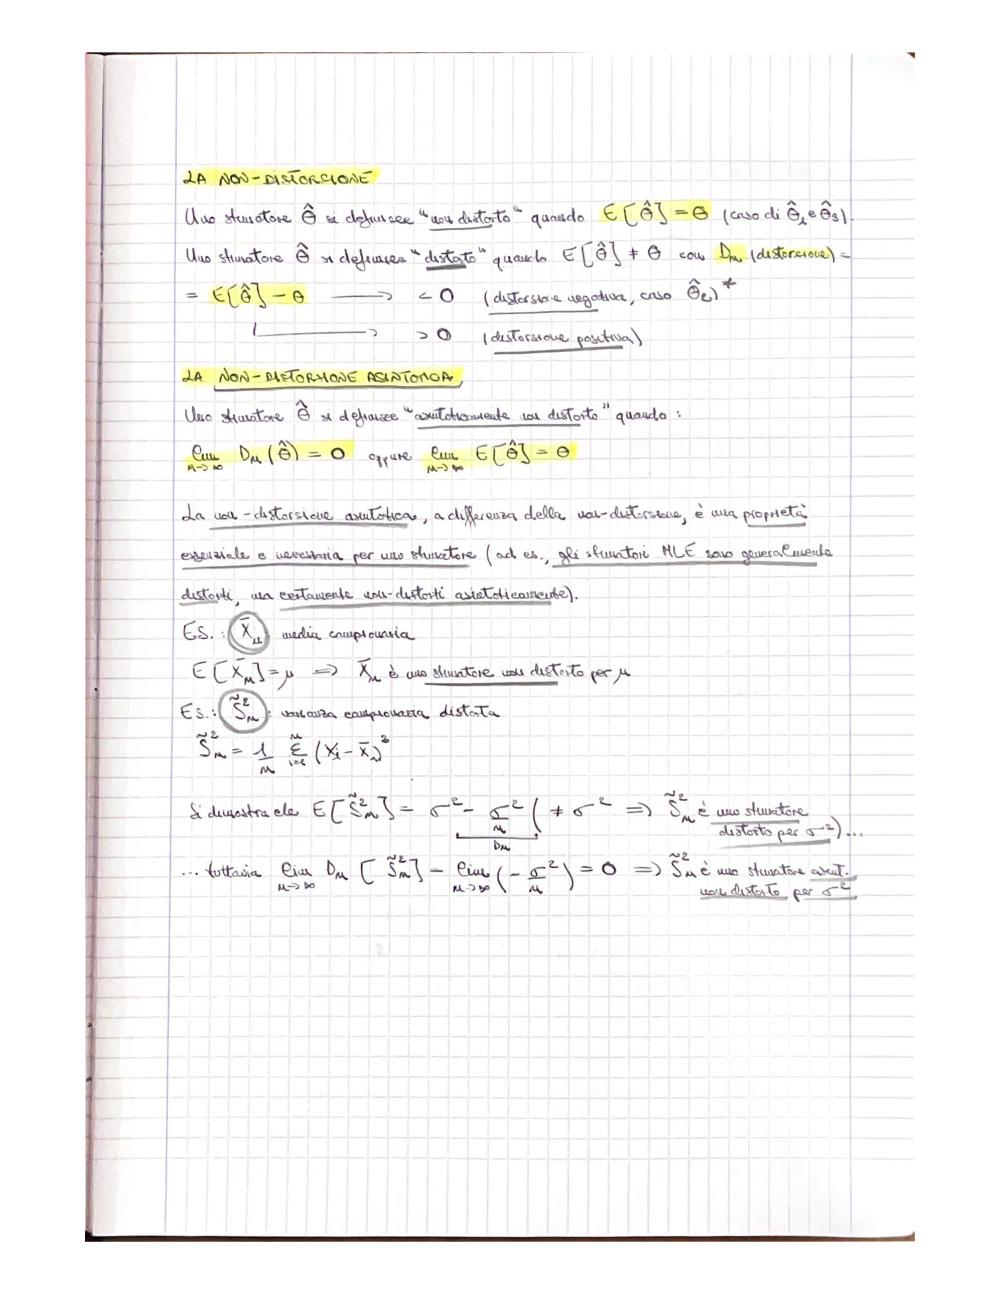 LA NON-DISTORSIONE
Uno stimatore θ̂ si definisce "non distorto" quando E[θ̂] = θ (caso di θ̂₁ e θ̂₃).
Uno stimatore θ̂ si definisce "distorto" quando E[θ̂] ≠ θ con Dₙ (distorsione) =
= E[θ̂] - θ → < 0 (distorsione negativa, caso θ̂₂)*
→ > 0 (distorsione positiva)
LA NON-DISTORSIONE ASINTOTICA
Uno stimatore θ̂ si definisce "asintoticamente non distorto" quando :
lim n→∞ Dₙ(θ̂) = 0 oppure lim n→∞ E[θ̂] = θ
La non-distorsione asintotica, a differenza della non-distorsione, è una proprietà
essenziale e necessaria per uno stimatore (ad es., gli stimatori MLE sono generalmente
distorti, ma certamente non-distorti asintoticamente).
ES.: X̄ₙ : media campionaria
E[X̄ₙ] = μ ⇒ X̄ₙ è uno stimatore non distorto per μ
Es.: S̃²ₙ : varianza campionaria distorta
S̃²ₙ = 1/n Σⁿᵢ₌₁ (Xᵢ - X̄ₙ)²
Si dimostra che E[S̃²ₙ] = σ² - σ²/n ( ≠ σ² ⇒ S̃²ₙ è uno stimatore
Dₙ
distorto per σ²)...
... tuttavia lim n→∞ Dₙ [S̃²ₙ] = lim n→∞ (- σ²/n) = 0 ⇒ S̃²ₙ è uno stimatore asint.
non distorto per σ²